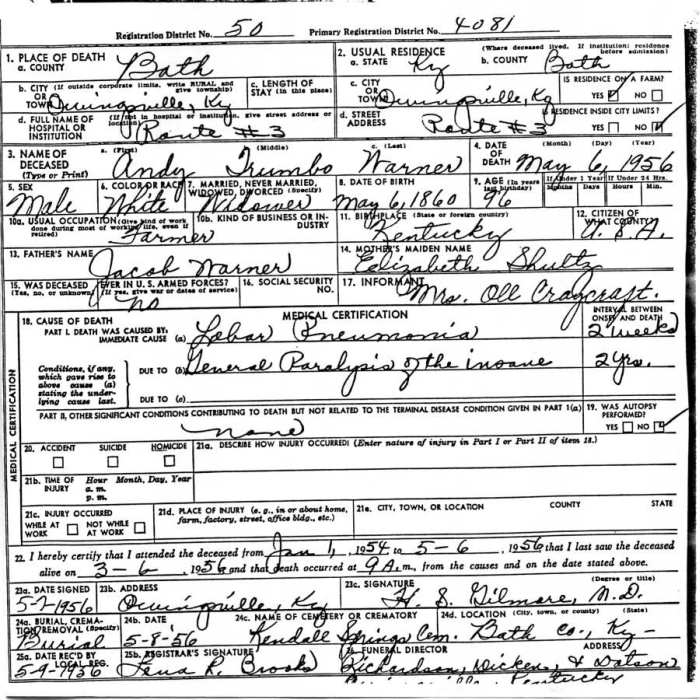 Registration District No. 50 Primary Registration District No. 4081
1. PLACE OF DEATH
a. COUNTY Bath
2. USUAL RESIDENCE (Where deceased lived. If institution: residence before admission)
a. STATE Ky b. COUNTY Bath
b. CITY (If outside corporate limits, write RURAL and give township) OR TOWN Owingsville, Ky
c. LENGTH OF STAY (in this place)
c. CITY OR TOWN Owingsville, Ky
IS RESIDENCE ON A FARM?
YES NO
d. FULL NAME OF HOSPITAL OR INSTITUTION (If not in hospital or institution, give street address or location) Route #3
d. STREET ADDRESS Route #3
RESIDENCE INSIDE CITY LIMITS?
YES NO
3. NAME OF DECEASED (Type or Print)
a. (First) (Middle) c. (Last)
Andy Trumbo Warner
4. DATE OF DEATH (Month) (Day) (Year)
May 6, 1956
5. SEX Male
6. COLOR OR RACE White
7. MARRIED, NEVER MARRIED, WIDOWED, DIVORCED (Specify) Widower
8. DATE OF BIRTH May 6, 1860
9. AGE (In years last birthday) 96
If Under 1 Year If Under 24 Hrs.
Months Days Hours Min.
10a. USUAL OCCUPATION (Give kind of work done during most of working life, even if retired) Farmer
10b. KIND OF BUSINESS OR INDUSTRY
11. BIRTHPLACE (State or foreign country) Kentucky
12. CITIZEN OF WHAT COUNTRY? U.S.A.
13. FATHER'S NAME Jacob Warner
14. MOTHER'S MAIDEN NAME Elizabeth Shultz
15. WAS DECEASED EVER IN U. S. ARMED FORCES?
(Yes, no, or unknown) (If yes, give war or dates of service)
No
16. SOCIAL SECURITY NO.
17. INFORMANT Mrs. Oll Craycraft.
MEDICAL CERTIFICATION
18. CAUSE OF DEATH
PART I. DEATH WAS CAUSED BY:
IMMEDIATE CAUSE (a) Lobar Pneumonia
INTERVAL BETWEEN ONSET AND DEATH
2 weeks
Conditions, if any, which gave rise to above cause (a) stating the underlying cause last.
DUE TO (b) General Paralysis of the insane 2 yrs.
DUE TO (c)
PART II. OTHER SIGNIFICANT CONDITIONS CONTRIBUTING TO DEATH BUT NOT RELATED TO THE TERMINAL DISEASE CONDITION GIVEN IN PART I(a)
none
19. WAS AUTOPSY PERFORMED?
YES NO
MEDICAL CERTIFICATION
20. ACCIDENT SUICIDE HOMICIDE
21a. DESCRIBE HOW INJURY OCCURRED! (Enter nature of injury in Part I or Part II of item 18.)
21b. TIME OF INJURY Hour Month, Day, Year
a. m.
p. m.
21c. INJURY OCCURRED
WHILE AT WORK NOT WHILE AT WORK
21d. PLACE OF INJURY (e. g., in or about home, farm, factory, street, office bldg., etc.)
21e. CITY, TOWN, OR LOCATION COUNTY STATE
22. I hereby certify that I attended the deceased from Jan 1, 1954 to 5-6, 1956 that I last saw the deceased
alive on 3-6, 1956 and that death occurred at 9 A.m., from the causes and on the date stated above.
23a. DATE SIGNED 5-7-1956
23b. ADDRESS Owingsville, Ky
23c. SIGNATURE (Degree or title)
H. S. Gilmore, M.D.
24a. BURIAL, CREMATION, REMOVAL (Specify) Burial
24b. DATE 5-8-56
24c. NAME OF CEMETERY OR CREMATORY Kendall Springs Cem.
24d. LOCATION (City, town, or county) (State)
Bath Co., Ky-
25a. DATE REC'D BY LOCAL REG. 5-9-1956
25b. REGISTRAR'S SIGNATURE Lena R. Brooks
26. FUNERAL DIRECTOR ADDRESS
Richardson, Dickens, & Datson
Kentucky